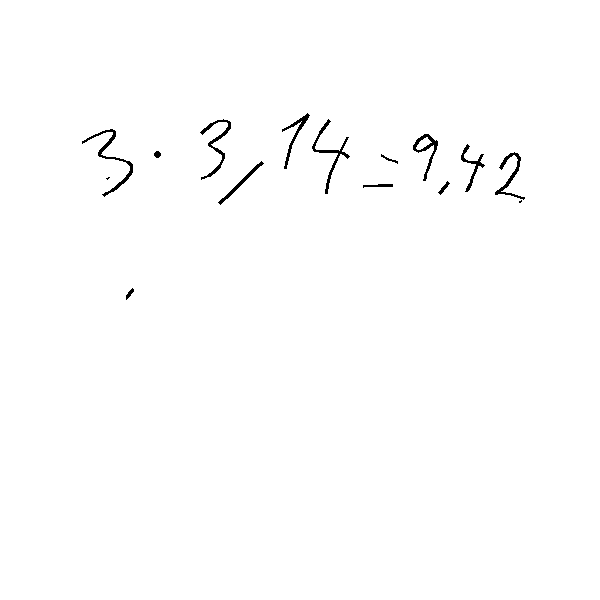 3 · 3,14 = 9,42